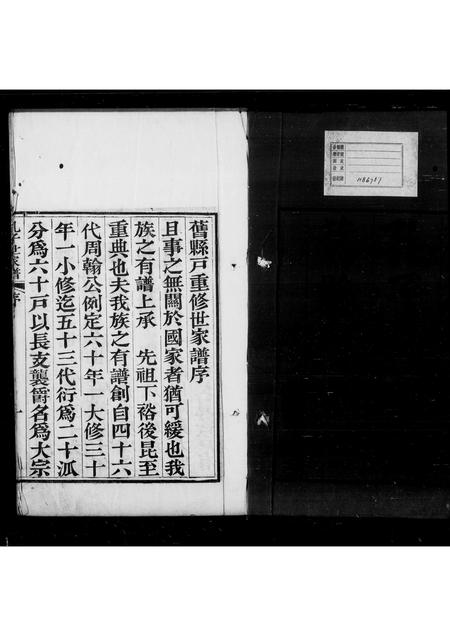 舊縣戸重修世家譜序
且事之無關於國家者猶可緩也我
族之有譜上承　先祖下裕後昆至
重典也夫我族之有譜創自四十六
代周翰公例定六十年一大修三十
年一小修迄五十三代衍爲二十派
分爲六十戸以長支襲爵名爲大宗
孔子世家譜　序　一